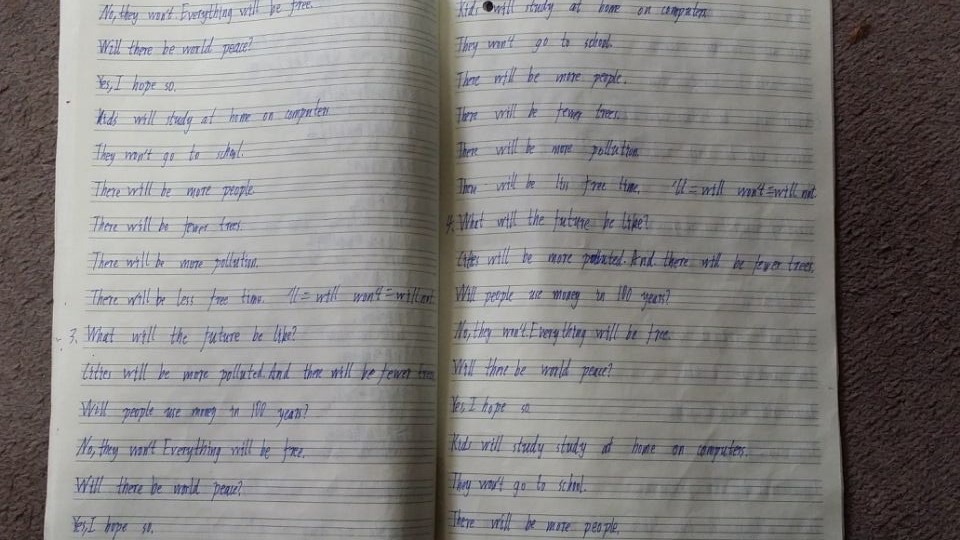 No, they won't. Everything will be free.
Will there be world peace?
Yes, I hope so.
Kids will study at home on computers
They won't go to school.
There will be more people.
There will be fewer trees.
There will be more pollution.
There will be less free time. 'll = will won't = will not
3. What will the future be like?
Cities will be more polluted. And there will be fewer trees
Will people use money in 100 years?
No, they won't Everything will be free.
Will there be world peace?
Yes, I hope so.
Kids will study at home on computers
They won't go to school.
There will be more people.
There will be fewer trees.
There will be more pollution.
There will be less free time. 'll = will won't = will not
4. What will the future be like?
Cities will be more polluted. And there will be fewer trees.
Will people use money in 100 years?
No, they won't. Everything will be free.
Will there be world peace?
Yes, I hope so
Kids will study study at home on computers.
They won't go to school.
There will be more people.